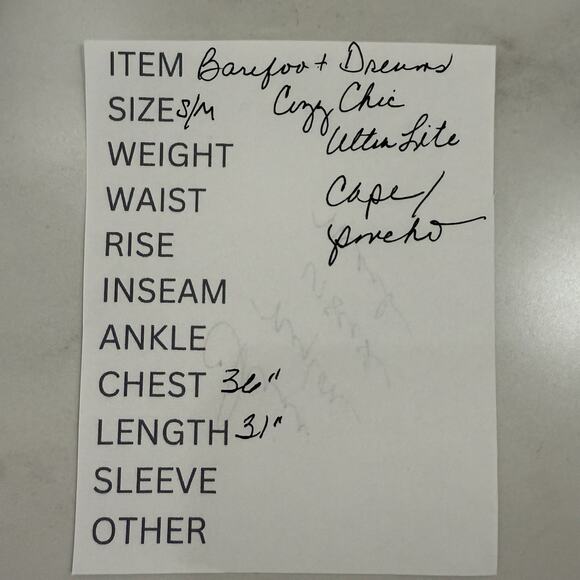 ITEM Barefoot Dreams
SIZE S/M Cozy Chic
Ultra Lite
WEIGHT
WAIST Cape/
poncho
RISE
INSEAM
ANKLE
CHEST 36"
LENGTH 31"
SLEEVE
OTHER